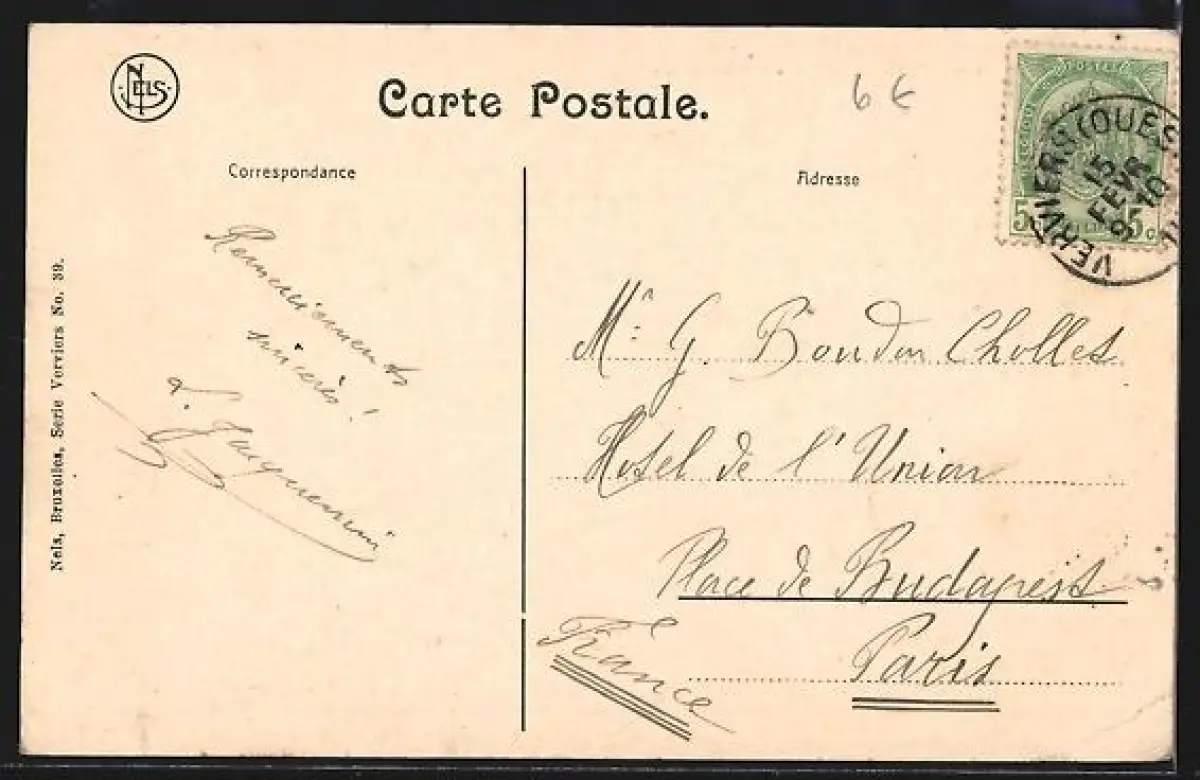 NELS
Carte Postale.
6 €
POSTES
5 5 c
VERVIERS (OUES
15
FEVR
9- 10
Correspondance
Adresse
Remerciements
sincères!
Mr: G. Boudon Chollet
Hotel de l'Union
Place de Budapest
Paris
France
Nels, Bruxelles, Serie Verviers No. 39.